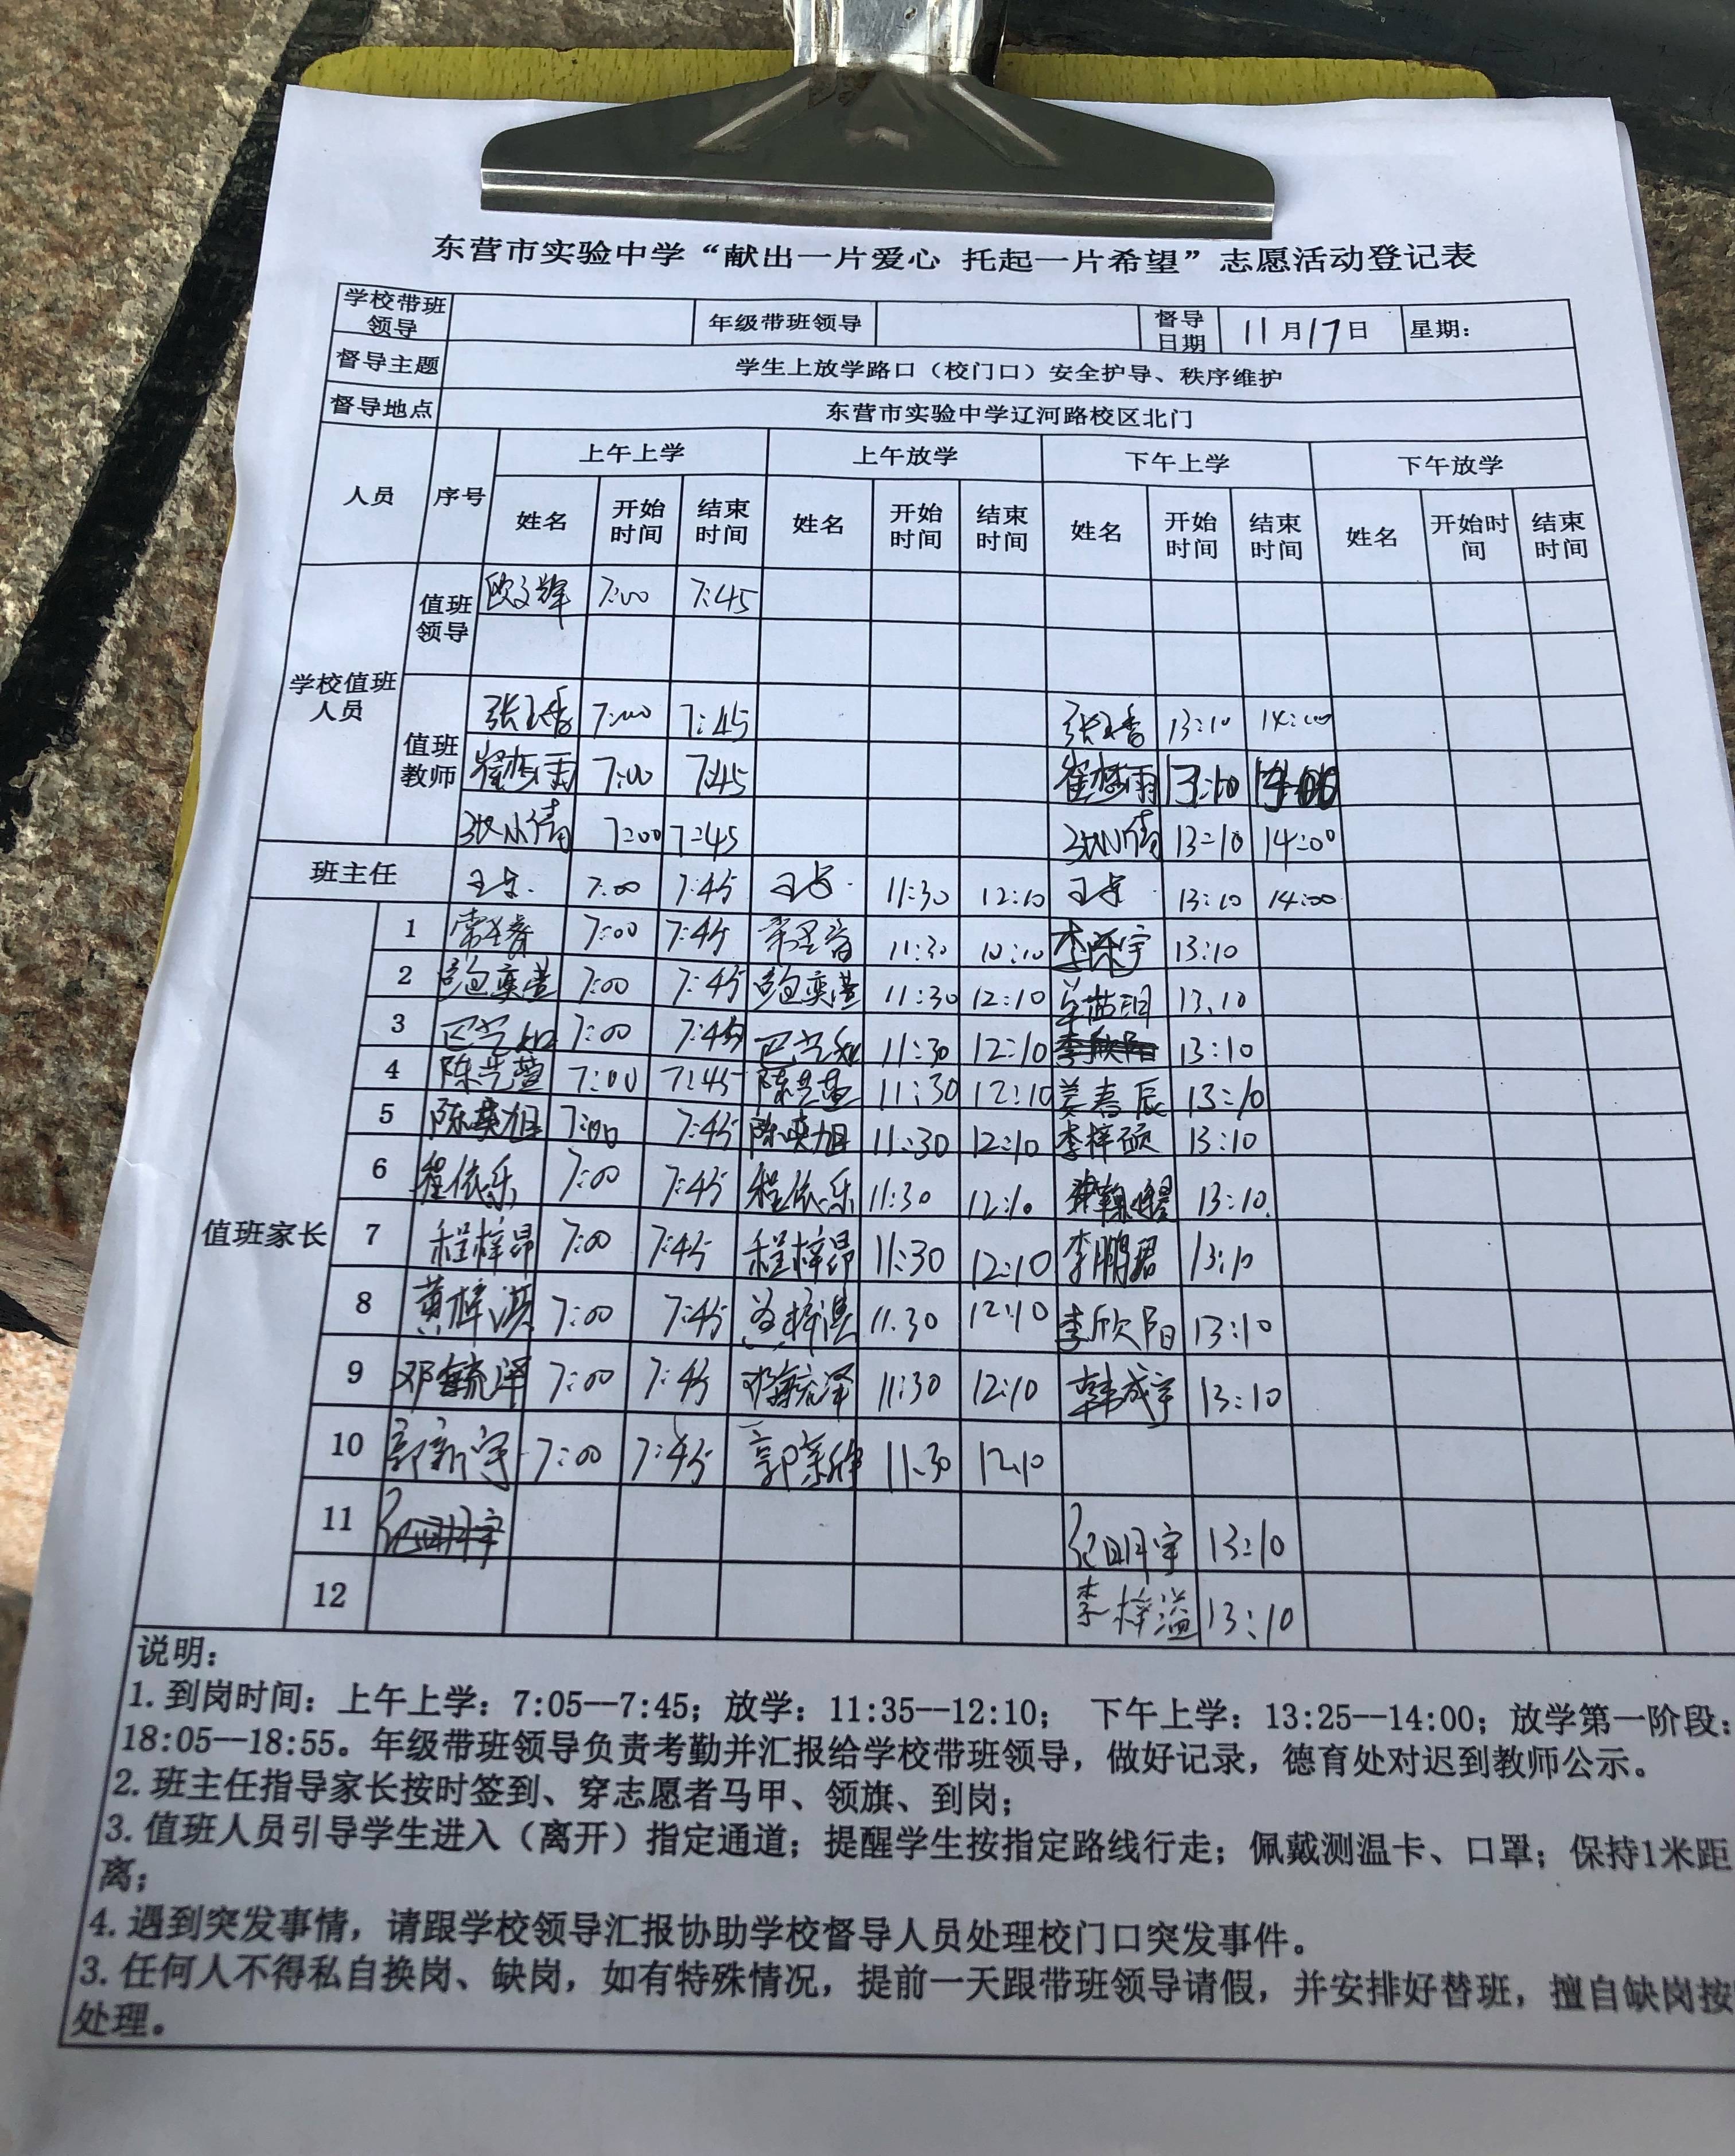 东营市实验中学“献出一片爱心 托起一片希望”志愿活动登记表
学校带班领导 年级带班领导 督导日期 11月17日 星期：
督导主题 学生上放学路口（校门口）安全护导、秩序维护
督导地点 东营市实验中学辽河路校区北门
人员 序号 上午上学 上午放学 下午上学 下午放学
姓名 开始时间 结束时间 姓名 开始时间 结束时间 姓名 开始时间 结束时间 姓名 开始时间 结束时间
学校值班人员
值班领导 欧文辉 7:00 7:45
值班教师
张玉香 7:00 7:45 张玉香 13:10 14:00
崔梦雨 7:00 7:45 崔梦雨 13:10 14:00
张小倩 7:00 7:45 张小倩 13:10 14:00
班主任 7:00 7:45 11:30 12:10 13:10 14:00
值班家长
1 7:00 7:45 11:30 12:10 13:10
2 7:00 7:45 11:30 12:10 13.10
3 7:00 7:45 11:30 12:10 李欣阳 13:10
4 7:00 7:45 11:30 12:10 姜春辰 13:10
5 陈奕旭 7:00 7:45 陈奕旭 11:30 12:10 李梓硕 13:10
6 程依乐 7:00 7:45 程依乐 11:30 12:10 13:10
7 程梓昂 7:00 7:45 程梓昂 11:30 12:10 李鹏君 13:10
8 黄梓淇 7:00 7:45 黄梓淇 11:30 12:10 李欣阳 13:10
9 邓毓泽 7:00 7:45 邓毓泽 11:30 12:10 韩成宇 13:10
10 7:00 7:45 11:30 12:10
11 纪明宇 13:10
12 李梓溢 13:10
说明：
1. 到岗时间：上午上学：7:05--7:45；放学：11:35--12:10； 下午上学：13:25--14:00；放学第一阶段：
18:05--18:55。年级带班领导负责考勤并汇报给学校带班领导，做好记录，德育处对迟到教师公示。
2. 班主任指导家长按时签到、穿志愿者马甲、领旗、到岗；
3. 值班人员引导学生进入（离开）指定通道；提醒学生按指定路线行走；佩戴测温卡、口罩；保持1米距
离；
4. 遇到突发事情，请跟学校领导汇报协助学校督导人员处理校门口突发事件。
3. 任何人不得私自换岗、缺岗，如有特殊情况，提前一天跟带班领导请假，并安排好替班，擅自缺岗按
处理。